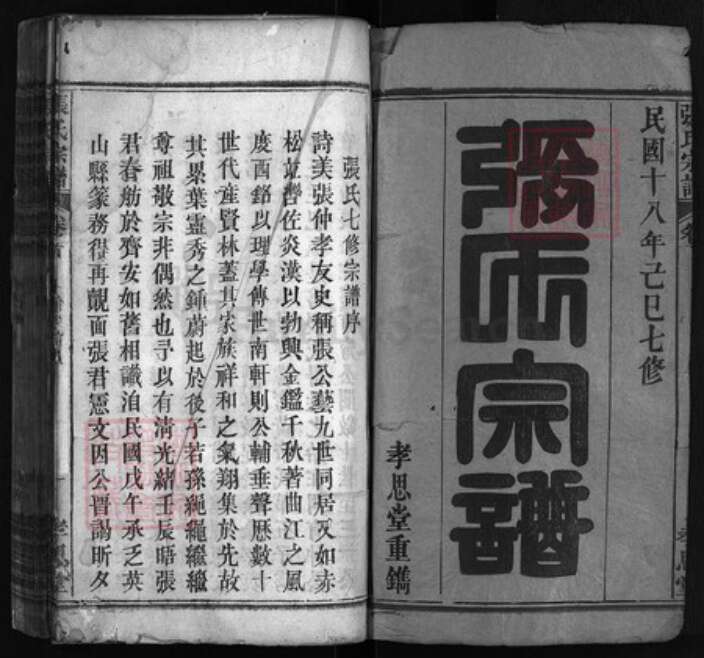 民國十八年己巳七修
張氏宗譜
孝思堂重鐫
張氏七修宗譜序
詩美張仲孝友史稱張公藝九世同居又如赤
松並轡佐炎漢以勃興金鑑千秋著曲江之風
度酉銘以理學傳世南軒則公輔垂聲歷數十
世代産賢林蓋其家族祥和之氣翔集於先故
其累葉靈秀之鍾蔚起於後子若孫繩繩繼繼
尊祖敬宗非偶然也予以有清光緒壬辰晤張
君春舫於齊安如舊相識洎民國戊午承乏英
山縣篆務得再覿面張君憲文因公晉謁昕夕
張氏宗譜
孝思堂